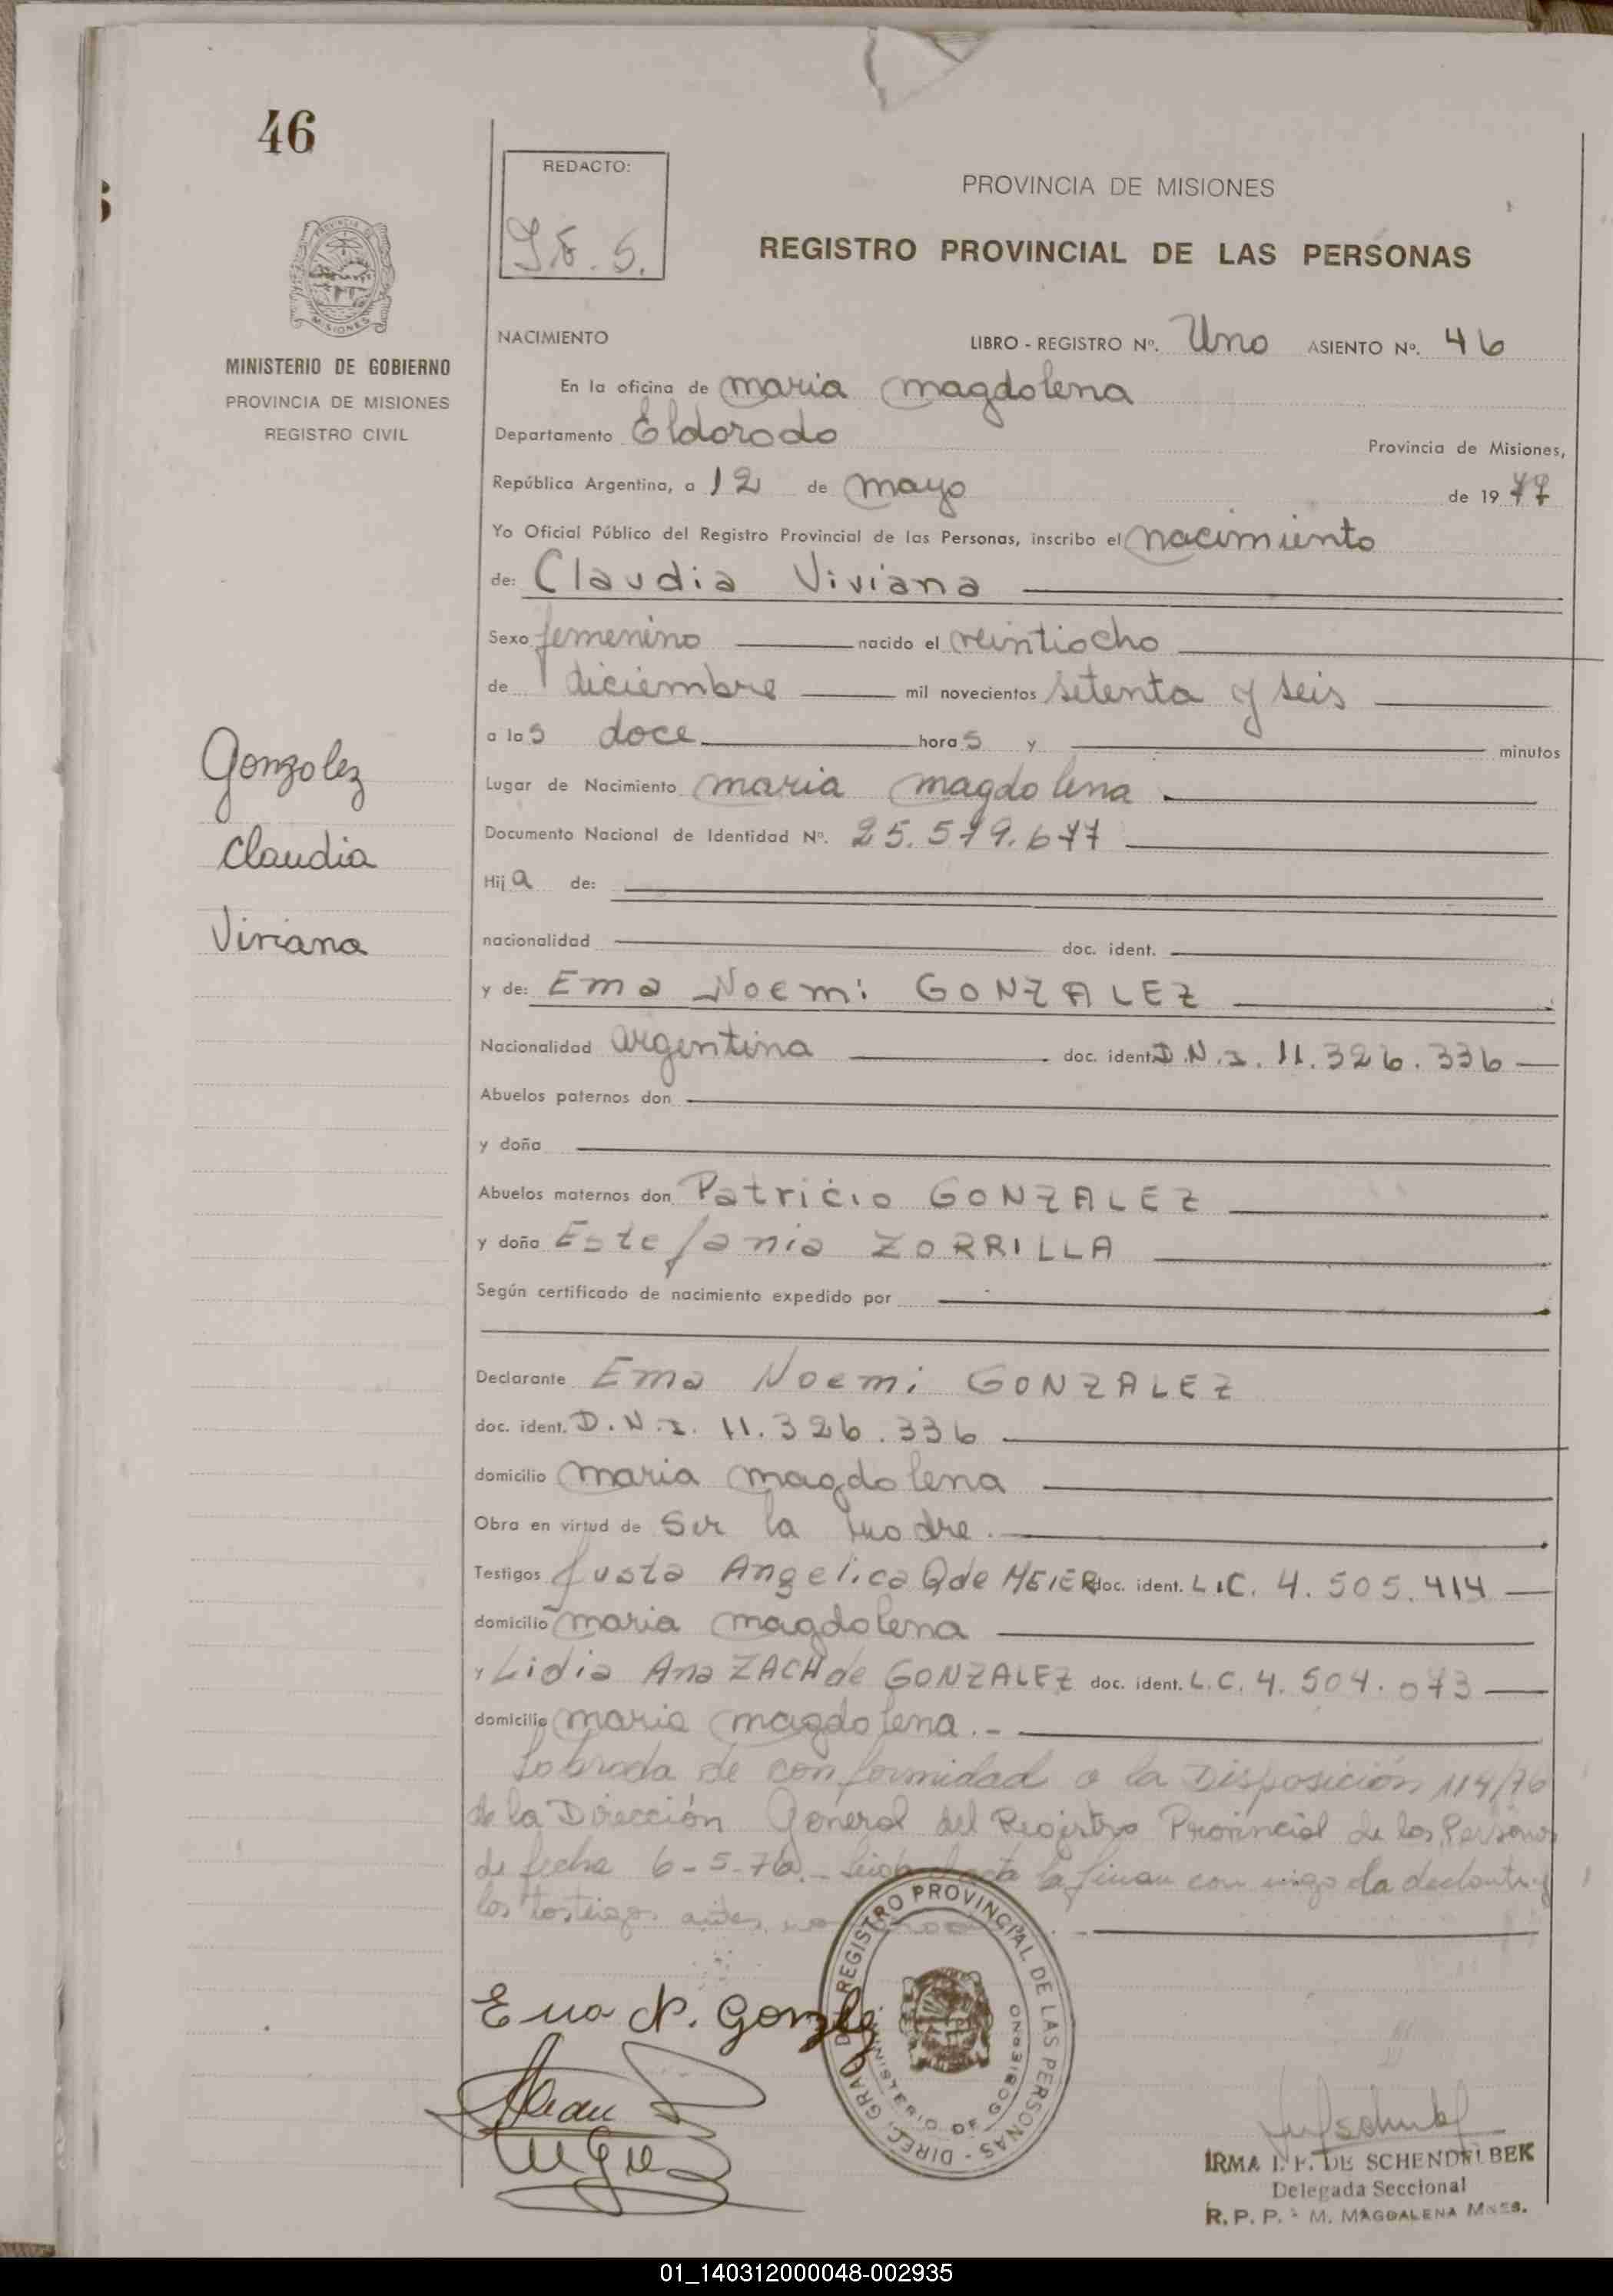 46
REDACTO:
PROVINCIA DE MISIONES
REGISTRO PROVINCIAL DE LAS PERSONAS
PROVINCIA DE
MISIONES
MINISTERIO DE GOBIERNO
PROVINCIA DE MISIONES
REGISTRO CIVIL
NACIMIENTO LIBRO - REGISTRO Nº. Uno ASIENTO Nº. 46
En la oficina de maria magdalena
Departamento Eldorado Provincia de Misiones,
República Argentina, a 12 de mayo de 1977
Yo Oficial Público del Registro Provincial de las Personas, inscribo el nacimiento
de: Claudia Viviana
Sexo femenino nacido el veintiocho
de diciembre mil novecientos setenta y seis
a las doce horas y minutos
Lugar de Nacimiento maria magdalena
Documento Nacional de Identidad Nº. 25.579.677
Hija de:
nacionalidad doc. ident.
y de: Ema Noemi GONZALEZ
Nacionalidad argentina doc. ident. D.N.I. 11.326.336
Abuelos paternos don
y doña
Abuelos maternos don Patricio GONZALEZ
y doña Estefania ZORRILLA
Según certificado de nacimiento expedido por
Declarante Ema Noemi GONZALEZ
doc. ident. D.N.I. 11.326.336
domicilio maria magdalena
Obra en virtud de Ser la madre.
Testigos Justa Angelica Q de MEIER doc. ident. L.C. 4.505.414
domicilio maria magdalena
y Lidia Ana ZACH de GONZALEZ doc. ident. L.C. 4.504.073
domicilio maria magdalena.-
Labrada de conformidad a la Disposición 114/76
de la Dirección General del Registro Provincial de las Personas
de fecha 6-5-76.- Leida el acta la firman con migo la declarante y
los testigos antes
Gonzalez
Claudia
Viviana
Ema N. Gonzalez
DIREC. GRAL. DEL REGISTRO PROVINCIAL DE LAS PERSONAS
MINISTERIO DE GOBIERNO
IRMA I. F. DE SCHENDELBEK
Delegada Seccional
R. P. P. - M. MAGDALENA Mnes.
01_140312000048-002935